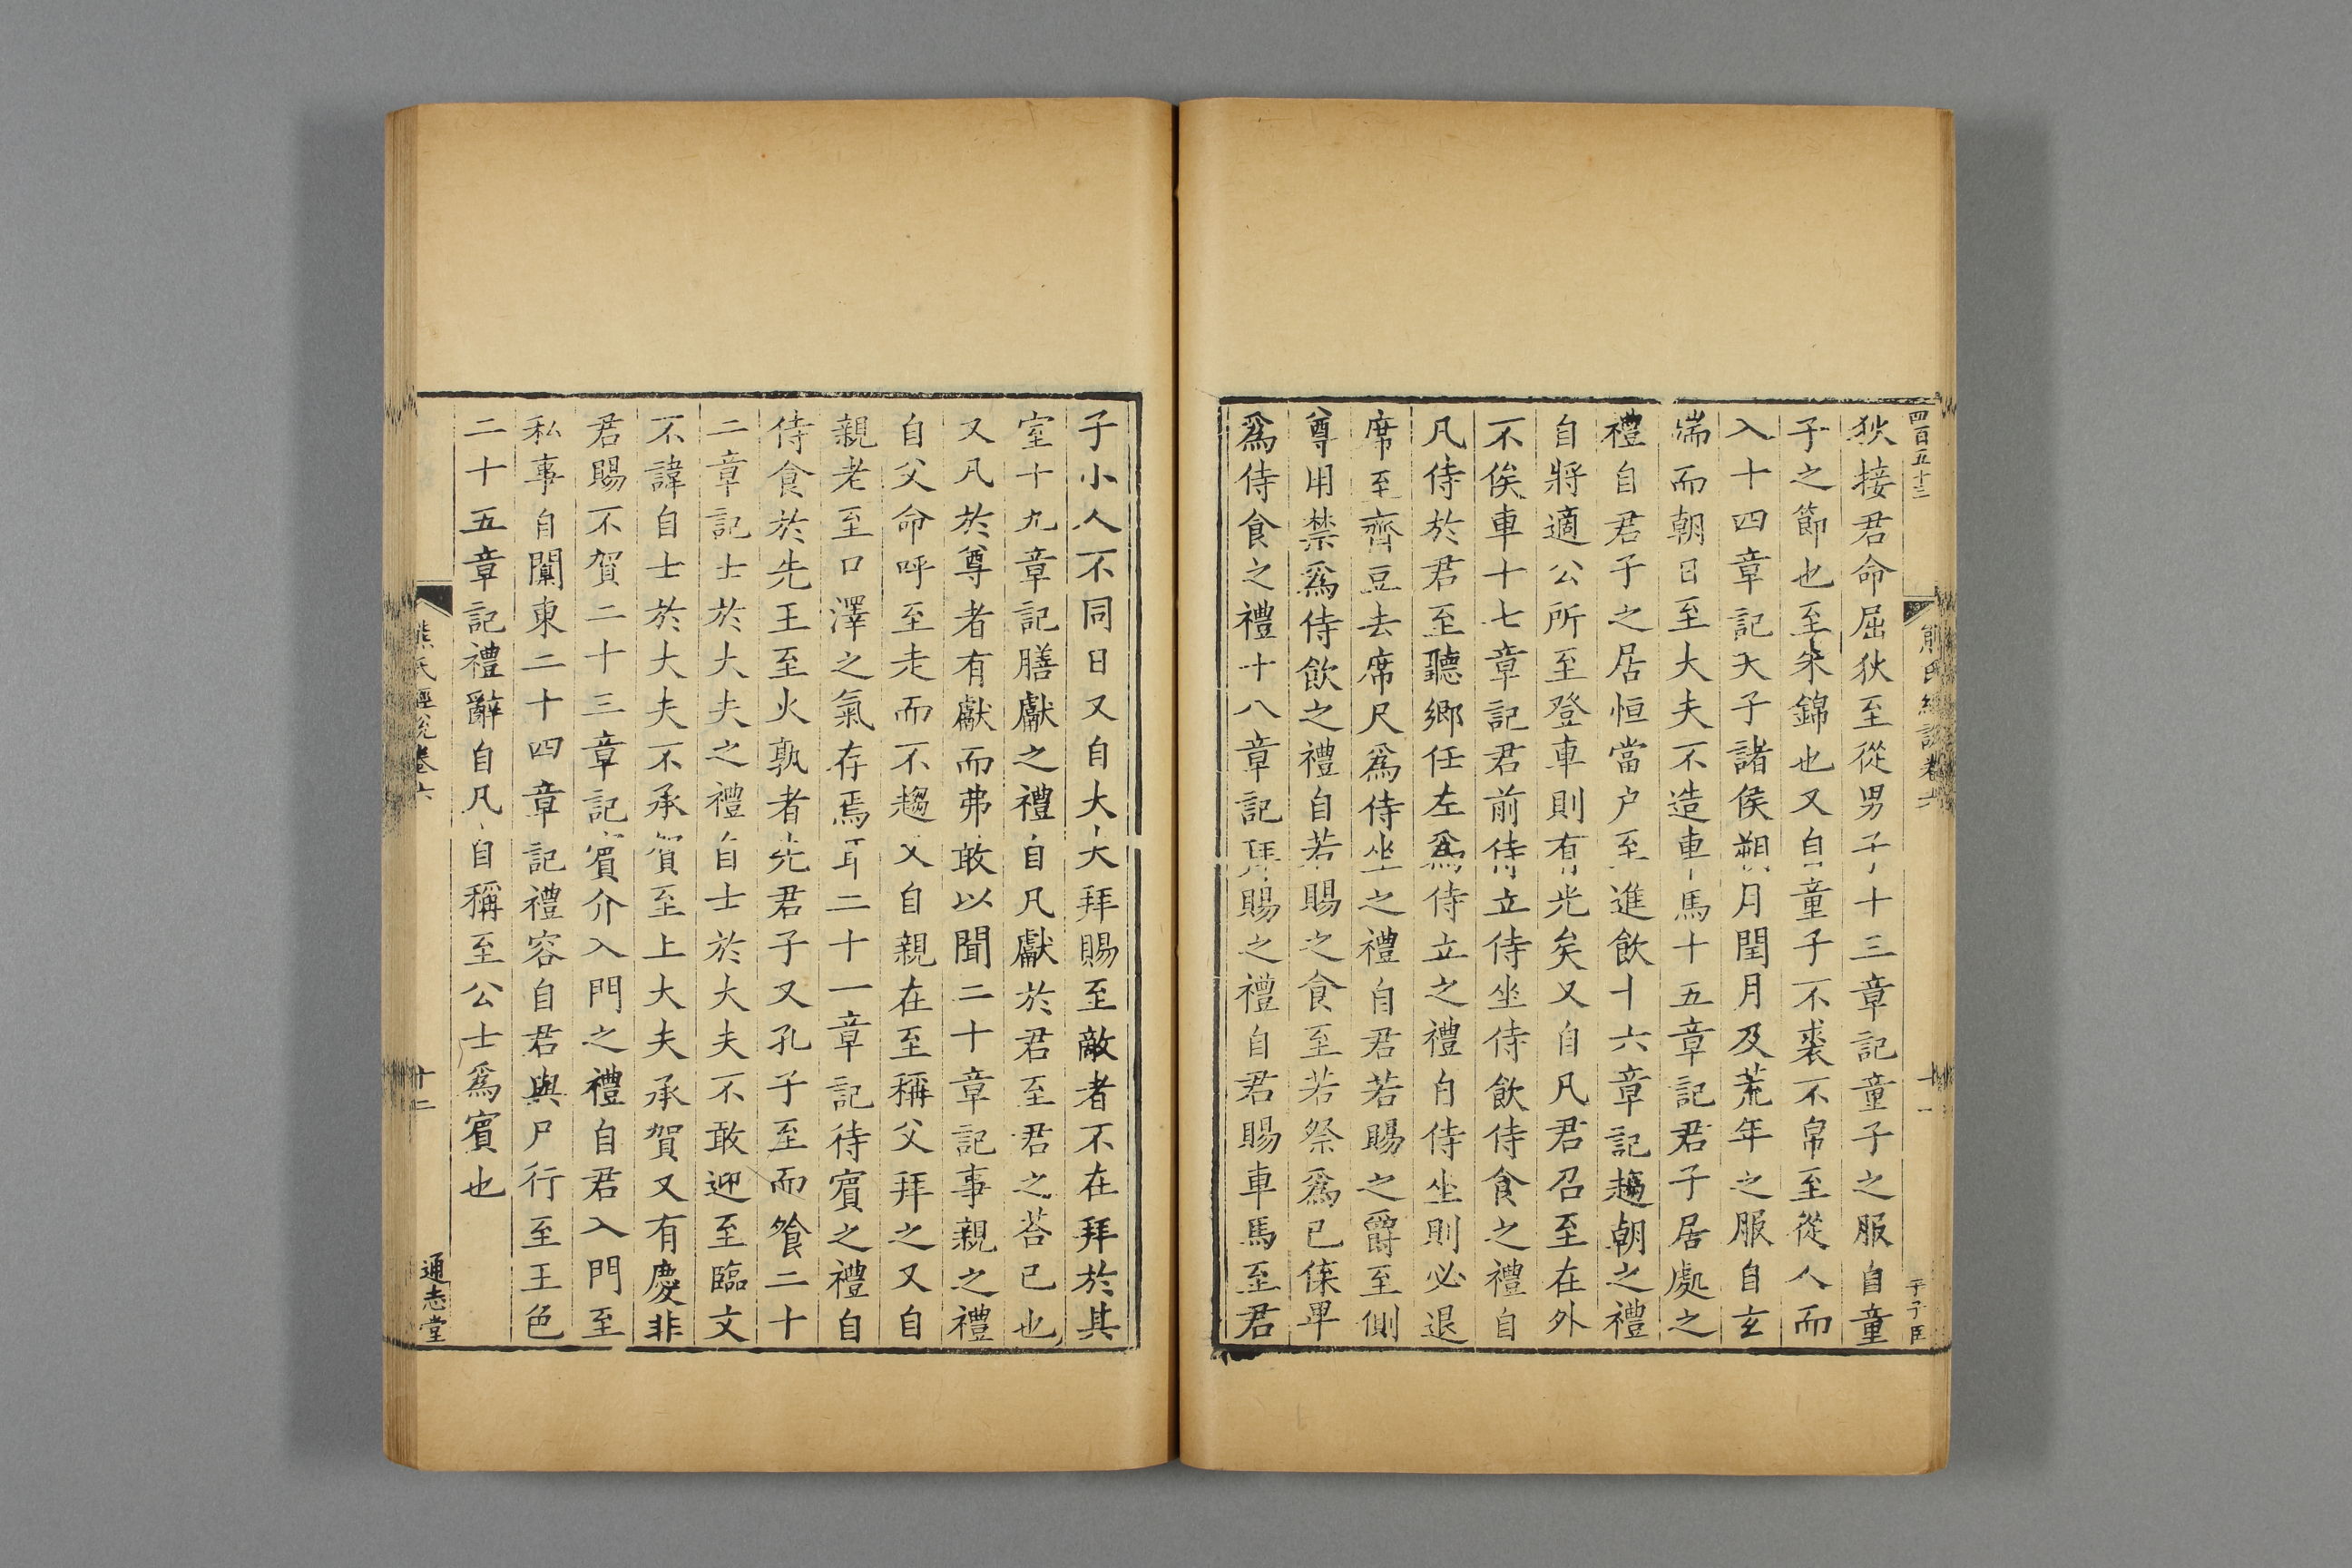 四百五十三
熊氏經說卷六
十一
狄接君命屈狄至從男子十三章記童子之服自童
子之節也至朱錦也又自童子不裘不帛至從人而
入十四章記天子諸侯朔月閏月及荒年之服自玄
端而朝日至大夫不造車馬十五章記君子居處之
禮自君子之居恒當户至進飲十六章記趨朝之禮
自將適公所至登車則有光矣又自凡君召至在外
不俟車十七章記君前侍立侍坐侍飲侍食之禮自
凡侍於君至聽鄉任左爲侍立之禮自侍坐則必退
席至齊豆去席尺爲侍坐之禮自君若賜之爵至側
尊用禁爲侍飲之禮自若賜之食至若祭爲已侎畢
爲侍食之禮十八章記拜賜之禮自君賜車馬至君
子小人不同日又自大夫拜賜至敵者不在拜於其
室十九章記膳獻之禮自凡獻於君至君之荅已也
又凡於尊者有獻而弗敢以聞二十章記事親之禮
自父命呼至走而不趨又自親在至稱父拜之又自
親老至口澤之氣存焉耳二十一章記待賓之禮自
侍食於先王至火孰者先君子又孔子至而飧二十
二章記士於大夫之禮自士於大夫不敢迎至臨文
不諱自士於大夫不承賀至上大夫承賀又有慶非
君賜不賀二十三章記賓介入門之禮自君入門至
私事自闑東二十四章記禮容自君與尸行至王色
二十五章記禮辭自凡自稱至公士爲賓也
熊氏經說卷六
十二
通志堂